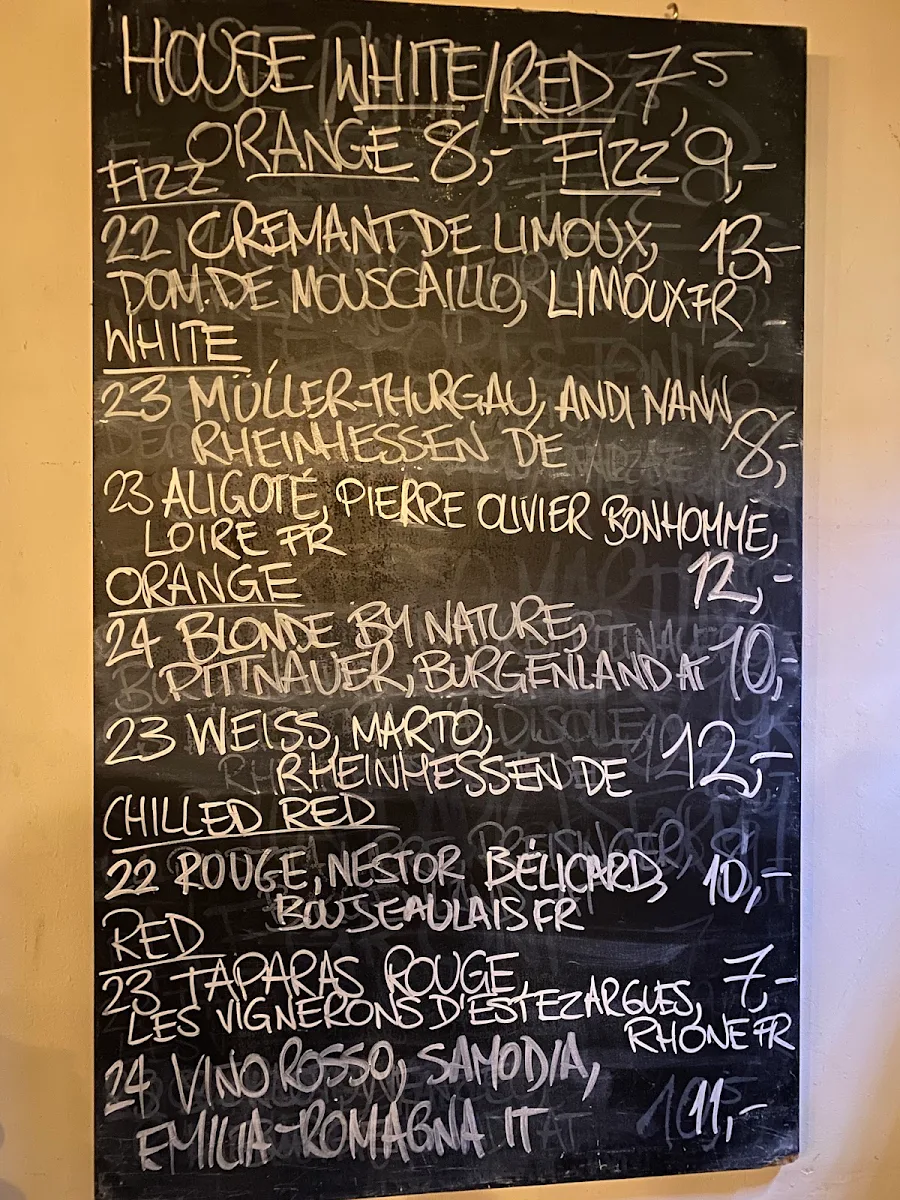 HOUSE WHITE/RED 7,5
ORANGE 8,- FIZZ 9,-
FIZZ
22 CREMANT DE LIMOUX, 13,-
DOM. DE MOUSCAILLO, LIMOUX FR
WHITE
23 MÜLLER-THURGAU, ANDI NANN
RHEINHESSEN DE 8,-
23 ALIGOTÉ, PIERRE OLIVIER BONHOMME,
LOIRE FR
12,-
ORANGE
24 BLONDE BY NATURE,
PITTNAUER, BURGENLAND AT 10,-
23 WEISS, MARTO,
RHEINHESSEN DE 12,-
CHILLED RED
22 ROUGE, NESTOR BÉLICARD, 10,-
BOUJEAULAIS FR
RED
23 TAPARAS ROUGE, 7,-
LES VIGNERONS D'ESTEZARGUES,
RHONE FR
24 VINO ROSSO, SAMODIA,
EMILIA-ROMAGNA IT 11,-